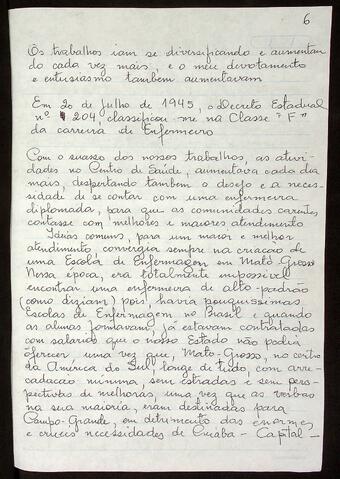 6
Os trabalhos iam se diversificando e aumentan
do cada vez mais, e o meu devotamento
e entusiasmo tambem aumentavam
Em 20 de julho de 1945, o Decreto Estadual
nº 204, classificou-me na Classe "F"
da carreira de Enfermeiro
Com o sucesso dos nossos trabalhos, as ativi-
dades no Centro de Saúde, aumentava cada dia
mais, despertando tambem o desejo e a neces-
sidade de se contar com uma enfermeira
diplomada, para que as comunidades carentes
contasse com milhores e maiores atendimento
Ideias comuns, para um maior e melhor
atendimento, convergia sempre na criacao de
uma Escola de Enfermagem em Mato-Grosso
Nessa época, era totalmente impossivel
encontrar uma enfermeira de alto-padrão
(como diziam) pois, havia pouquissimas
Escolas de Enfermagem no Brasil e quando
as alunas formavam, já estavam contratadas
com salários que o nosso Estado não podia
oferecer, uma vez que, Mato-Grosso, no centro
da América do Sul, longe de tudo, com arre-
cadacao minima, sem estradas e sem pers-
pectivas de melhoras, uma vez que as verbas
na sua maioria, eram destinadas para
Campo-Grande, em detrimento das enormes
e crueis necessidades de Cuiabá - Capital -